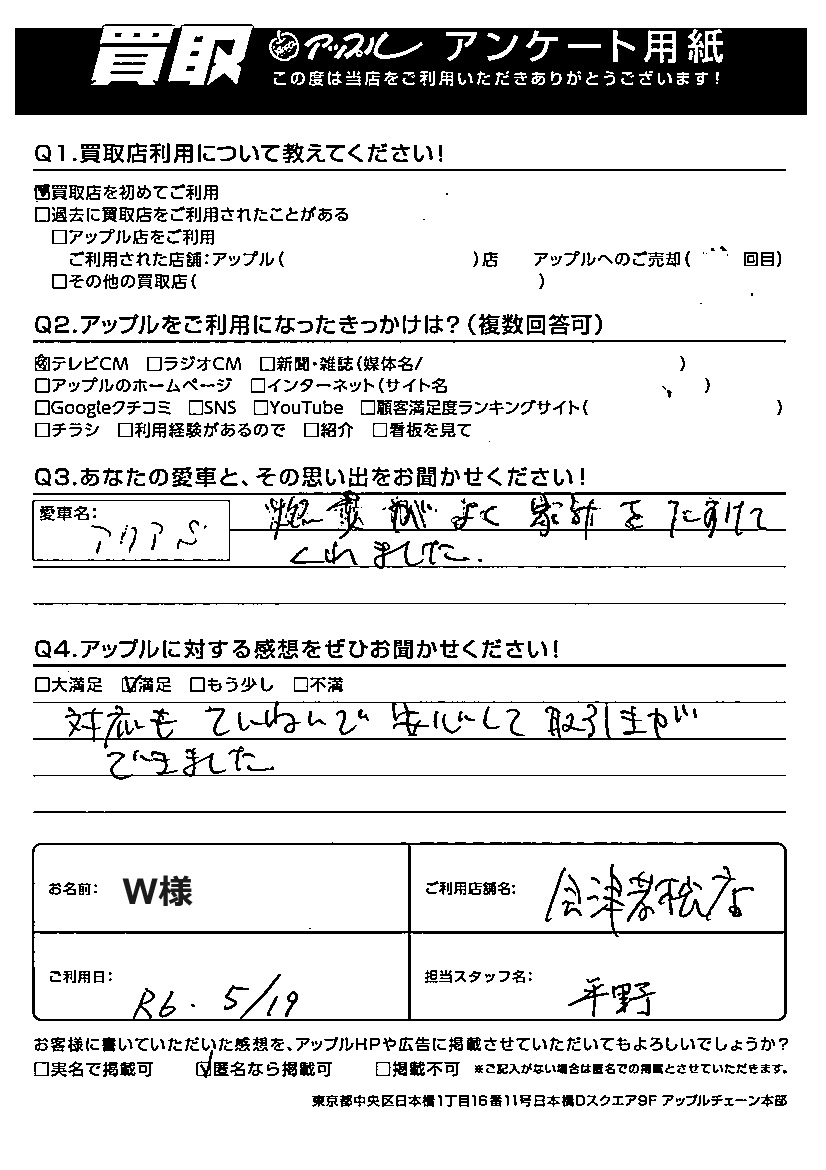 買取 アップル アンケート用紙
この度は当店をご利用いただきありがとうございます!
Q1.買取店利用について教えてください!
☑買取店を初めてご利用
□過去に買取店をご利用されたことがある
□アップル店をご利用
ご利用された店舗:アップル( )店 アップルへのご売却( 回目)
□その他の買取店( )
Q2.アップルをご利用になったきっかけは?(複数回答可)
☑テレビCM □ラジオCM □新聞・雑誌(媒体名/ )
□アップルのホームページ □インターネット(サイト名 )
□Googleクチコミ □SNS □YouTube □顧客満足度ランキングサイト( )
□チラシ □利用経験があるので □紹介 □看板を見て
Q3.あなたの愛車と、その思い出をお聞かせください!
愛車名: アクアS 燃費がよく家計をたすけて
くれました.
Q4.アップルに対する感想をぜひお聞かせください!
□大満足 ☑満足 □もう少し □不満
対応もていねいで安心して取引きが
できました
お名前: W様 ご利用店舗名: 会津若松店
ご利用日: R6. 5/19 担当スタッフ名: 平野
お客様に書いていただいた感想を、アップルHPや広告に掲載させていただいてもよろしいでしょうか?
□実名で掲載可 ☑匿名なら掲載可 □掲載不可 ※ご記入がない場合は匿名での掲載とさせていただきます。
東京都中央区日本橋1丁目16番11号日本橋Dスクエア9F アップルチェーン本部